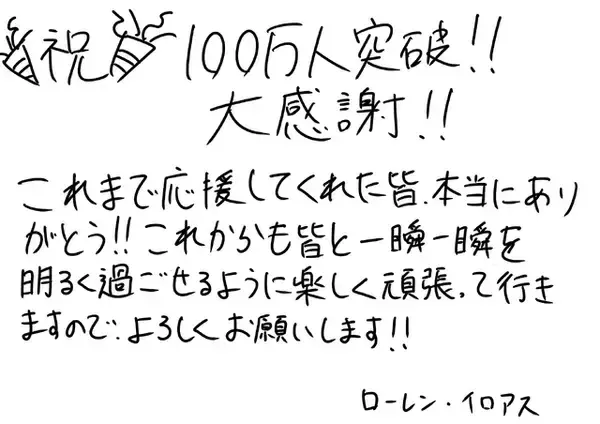 祝 100万人突破!!
大感謝!!
これまで応援してくれた皆、本当にあり
がとう!!これからも皆と一瞬一瞬を
明るく過ごせるように楽しく頑張って行き
ますので、よろしくお願いします!!
ローレン・イロアス